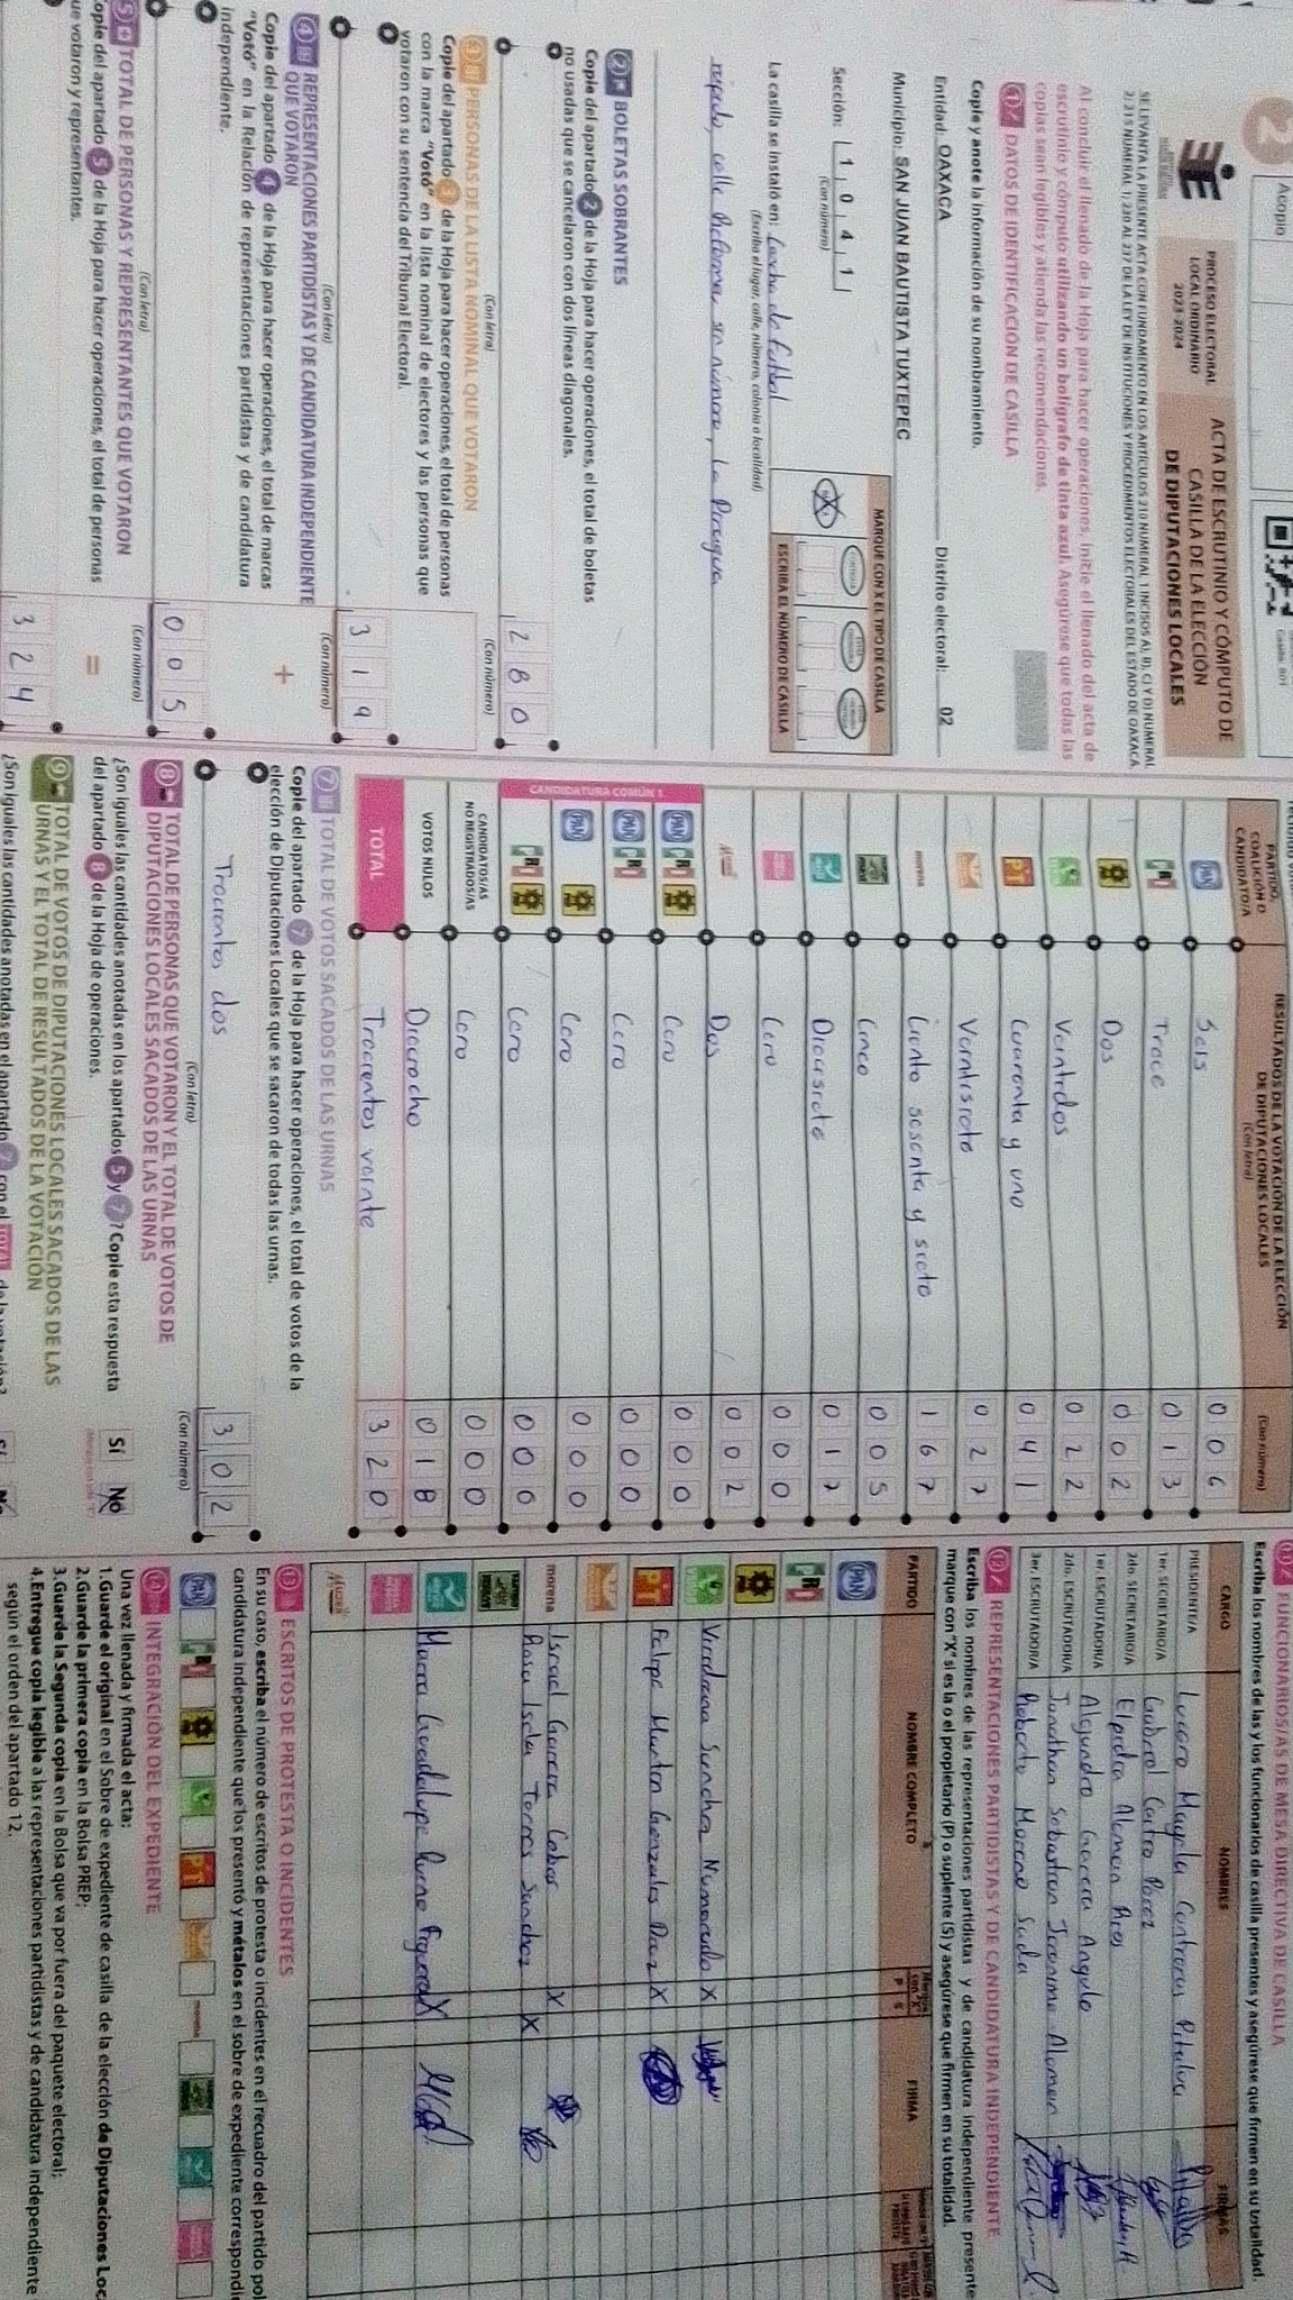 2
Acopio
PROCESO ELECTORAL
LOCAL ORDINARIO
2023-2024
ACTA DE ESCRUTINIO Y CÓMPUTO DE
CASILLA DE LA ELECCIÓN
DE DIPUTACIONES LOCALES
Al concluir el llenado de la Hoja para hacer operaciones, inicie el llenado del acta de
escrutinio y cómputo utilizando un bolígrafo de tinta azul. Asegúrese que todas las
copias sean legibles y atienda las recomendaciones.
1 DATOS DE IDENTIFICACIÓN DE CASILLA
Copie y anote la información de su nombramiento.
Entidad: OAXACA Distrito electoral: 02
Municipio: SAN JUAN BAUTISTA TUXTEPEC
Sección: 1 0 4 1
(Con número)
MARQUE CON X EL TIPO DE CASILLA
ESCRIBA EL NÚMERO DE CASILLA
La casilla se instaló en: Cancha de futbol
(Escriba el lugar, calle, número, colonia o localidad)
calle Reforma, sin número, La Piragua
2 BOLETAS SOBRANTES
Copie del apartado 2 de la Hoja para hacer operaciones, el total de boletas
no usadas que se cancelaron con dos líneas diagonales.
2 8 0
(Con letra) (Con número)
3 PERSONAS DE LA LISTA NOMINAL QUE VOTARON
Copie del apartado 3 de la Hoja para hacer operaciones, el total de personas
con la marca "Votó" en la lista nominal de electores y las personas que
votaron con su sentencia del Tribunal Electoral.
3 1 9
(Con letra) (Con número)
4 REPRESENTACIONES PARTIDISTAS Y DE CANDIDATURA INDEPENDIENTE
QUE VOTARON +
Copie del apartado 4 de la Hoja para hacer operaciones, el total de marcas
"Votó" en la Relación de representaciones partidistas y de candidatura
independiente.
0 0 5
(Con letra) (Con número)
5 TOTAL DE PERSONAS Y REPRESENTANTES QUE VOTARON
=
Copie del apartado 5 de la Hoja para hacer operaciones, el total de personas
que votaron y representantes.
3 2 4
PARTIDO,
COALICIÓN O
CANDIDATO/A
RESULTADOS DE LA VOTACIÓN DE LA ELECCIÓN
DE DIPUTACIONES LOCALES
(Con letra)
(Con número)
PAN Seis 0 0 6
PRI Trece 0 1 3
Dos 0 0 2
Veintidos 0 2 2
PT Cuarenta y uno 0 4 1
Veintisiete 0 2 7
morena Ciento sesenta y siete 1 6 7
Cinco 0 0 5
Diecisiete 0 1 7
Cero 0 0 0
Dos 0 0 2
CANDIDATURA COMÚN 1
PAN PRI Cero 0 0 0
PAN PRI Cero 0 0 0
PAN Cero 0 0 0
PRI Cero 0 0 0
CANDIDATOS/AS
NO REGISTRADOS/AS Cero 0 0 0
VOTOS NULOS Dieciocho 0 1 8
TOTAL Trecientos veinte 3 2 0
7 TOTAL DE VOTOS SACADOS DE LAS URNAS
Copie del apartado 7 de la Hoja para hacer operaciones, el total de votos de la
elección de Diputaciones Locales que se sacaron de todas las urnas.
Trecientos dos 3 0 2
(Con letra) (Con número)
8 TOTAL DE PERSONAS QUE VOTARON Y EL TOTAL DE VOTOS DE
DIPUTACIONES LOCALES SACADOS DE LAS URNAS
¿Son iguales las cantidades anotadas en los apartados 5 y 7? Copie esta respuesta
del apartado 8 de la Hoja de operaciones.
Sí No
9 TOTAL DE VOTOS DE DIPUTACIONES LOCALES SACADOS DE LAS
URNAS Y EL TOTAL DE RESULTADOS DE LA VOTACIÓN
11 FUNCIONARIOS/AS DE MESA DIRECTIVA DE CASILLA
Escriba los nombres de las y los funcionarios de casilla presentes y asegúrese que firmen en su totalidad.
CARGO NOMBRES FIRMAS
PRESIDENTE/A Lucero Mayela Contreras Pitalua
1er. SECRETARIO/A Gabriel Castro Perez
2do. SECRETARIO/A Elpidia Aleman Rios
1er. ESCRUTADOR/A Alejandro Garcia Angulo
2do. ESCRUTADOR/A Jonathan Sebastian Jeronimo Aleman
3er. ESCRUTADOR/A Roberto Moreno Sada
12 REPRESENTACIONES PARTIDISTAS Y DE CANDIDATURA INDEPENDIENTE
Escriba los nombres de las representaciones partidistas y de candidatura independiente presente
marque con "X" si es la o el propietario (P) o suplente (S) y asegúrese que firmen en su totalidad.
PARTIDO NOMBRE COMPLETO P S FIRMA
PAN
PRI
Viridiana Sanchez X
PT Felipe Martin Gonzalez Diaz X
morena Israel Garcia Cobos X
Rosa Isela Torres Sanchez X
Maria Guadalupe X
13 ESCRITOS DE PROTESTA O INCIDENTES
En su caso, escriba el número de escritos de protesta o incidentes en el recuadro del partido pol
candidatura independiente que los presentó y métalos en el sobre de expediente correspondi
PAN PRI PT morena
14 INTEGRACIÓN DEL EXPEDIENTE
Una vez llenada y firmada el acta:
1. Guarde el original en el Sobre de expediente de casilla de la elección de Diputaciones Loc
2. Guarde la primera copia en la Bolsa PREP;
3. Guarde la Segunda copia en la Bolsa que va por fuera del paquete electoral;
4. Entregue copia legible a las representaciones partidistas y de candidatura independiente
según el orden del apartado 12.